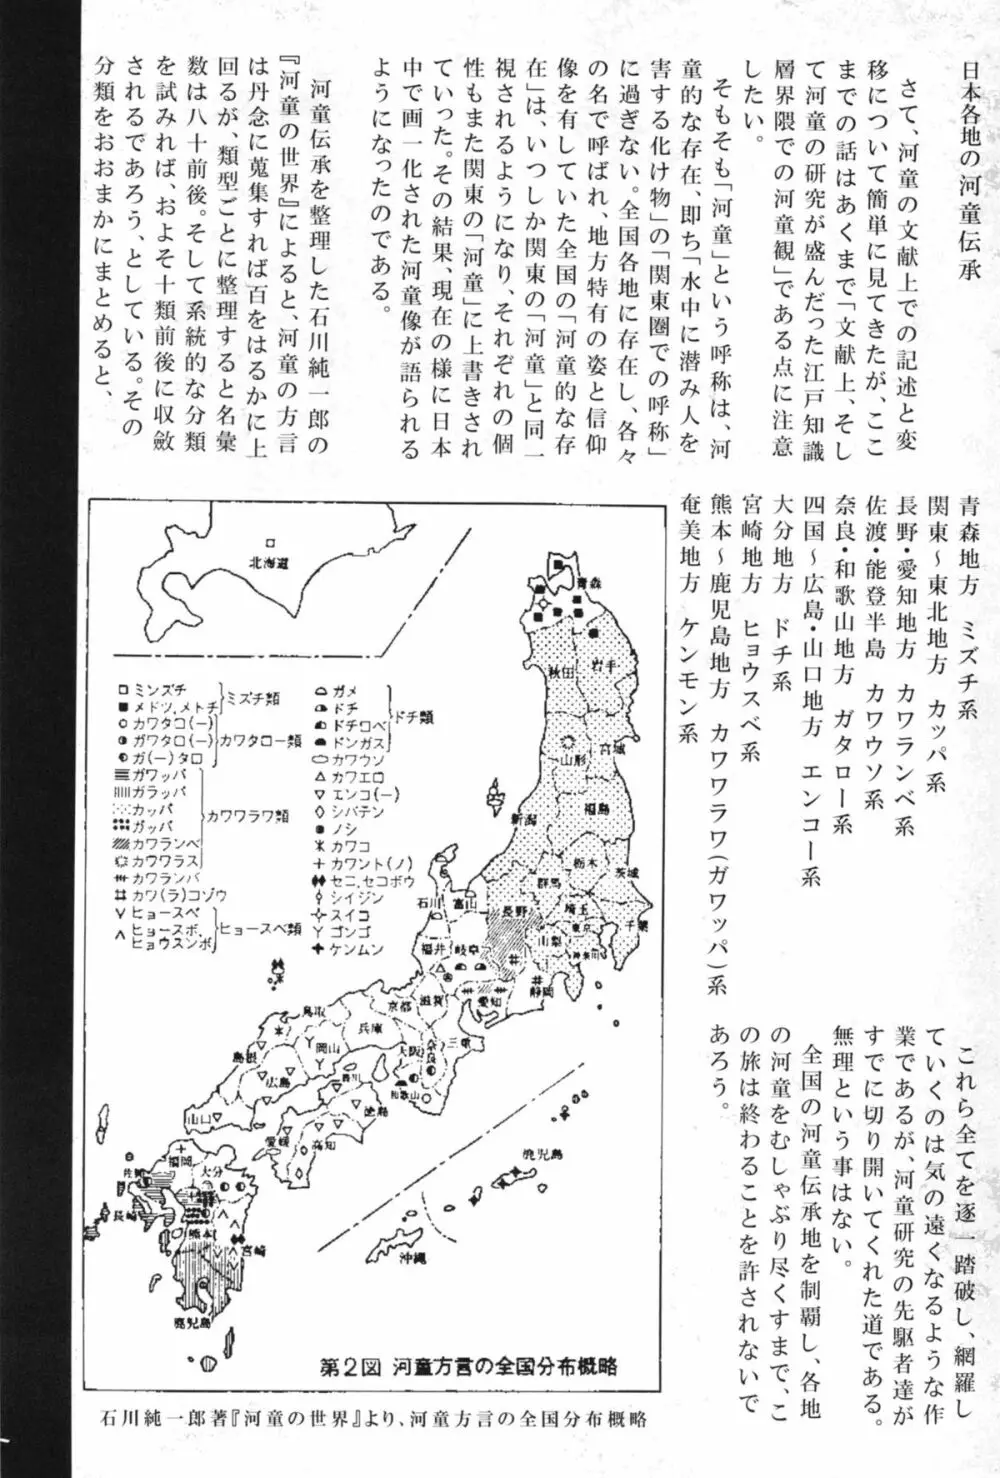 日本各地の河童伝承
さて、河童の文献上での記述と変
移について簡単に見てきたが、ここ
までの話はあくまで「文献上、そし
て河童の研究が盛んだった江戸知識
層界隈での河童観」である点に注意
したい。
そもそも「河童」という呼称は、河
童的な存在、即ち「水中に潜み人を
害する化け物」の「関東圏での呼称」
に過ぎない。全国各地に存在し、各々
の名で呼ばれ、地方特有の姿と信仰
像を有していた全国の「河童的な存
在」は、いつしか関東の「河童」と同一
視されるようになり、それぞれの個
性もまた関東の「河童」に上書きされ
ていった。その結果、現在の様に日本
中で画一化された河童像が語られる
ようになったのである。
河童伝承を整理した石川純一郎の
『河童の世界』によると、河童の方言
は丹念に蒐集すれば百をはるかに上
回るが、類型ごとに整理すると名彙
数は八十前後。そして系統的な分類
を試みれば、およそ十類前後に収斂
されるであろう、としている。その
分類をおおまかにまとめると、
青森地方　ミズチ系
関東〜東北地方　カッパ系
長野・愛知地方　カワランベ系
佐渡・能登半島　カワウソ系
奈良・和歌山地方　ガタロー系
四国〜広島・山口地方　エンコー系
大分地方　ドチ系
宮崎地方　ヒョウスベ系
熊本〜鹿児島地方　カワワラワ(ガワッパ)系
奄美地方　ケンモン系
これら全てを逐一踏破し、網羅し
ていくのは気の遠くなるような作
業であるが、河童研究の先駆者達が
すでに切り開いてくれた道である。
無理という事はない。
全国の河童伝承地を制覇し、各地
の河童をむしゃぶり尽くすまで、こ
の旅は終わることを許されないで
あろう。
北海道
ミンズチ
メドツ、メトチ
ミズチ類
カワタコ(ー)
ガワタロ(ー)
ガ(ー)タロ
カワタロー類
ガワッパ
ガラッパ
カッパ
ガッパ
カワランベ
カワワラス
カワランバ
カワ(ラ)コゾウ
カワワラワ類
ヒョースベ
ヒョースボ、
ヒョウスンボ
ヒョースベ類
ガメ
ドチ
ドチロベ
ドンガス
ドチ類
カワウソ
カワエロ
エンコ(ー)
シバテン
ノシ
カワコ
カワント(ノ)
セニ、セコボウ
シイジン
スイコ
ゴンゴ
ケンムン
青森
秋田
岩手
山形
宮城
新潟
福島
栃木
群馬
茨城
石川
富山
長野
埼玉
東京
千葉
山梨
神奈川
福井
岐阜
静岡
愛知
滋賀
京都
鳥取
兵庫
三重
大阪
奈良
岡山
島根
広島
香川
和歌山
山口
徳島
愛媛
高知
福岡
佐賀
大分
長崎
熊本
宮崎
鹿児島
鹿児島
沖縄
第2図 河童方言の全国分布概略
石川純一郎著『河童の世界』より、河童方言の全国分布概略